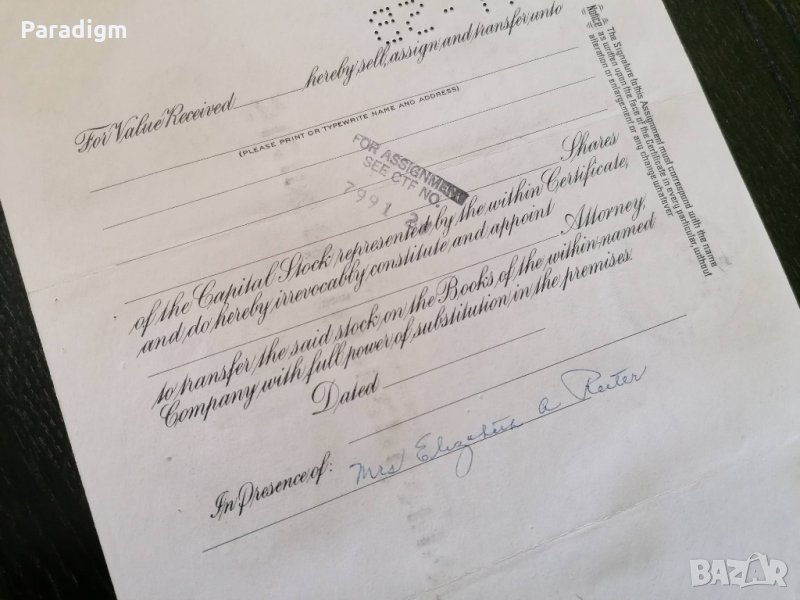 Paradigm
For Value Received hereby sell, assign and transfer unto
(PLEASE PRINT OR TYPEWRITE NAME AND ADDRESS)
FOR ASSIGNMENT
SEE CTF NO.
7991
Shares
of the Capital Stock represented by the within Certificate,
and do hereby irrevocably constitute and appoint
Attorney,
to transfer the said stock on the Books of the within-named
Company with full power of substitution in the premises.
Dated
Mrs Elizabeth A Reiter
In Presence of:
Notice: The Signature to this Assignment must correspond with the name
as written upon the face of the Certificate in every particular, without
alteration or enlargement or any change whatever
BAZAR